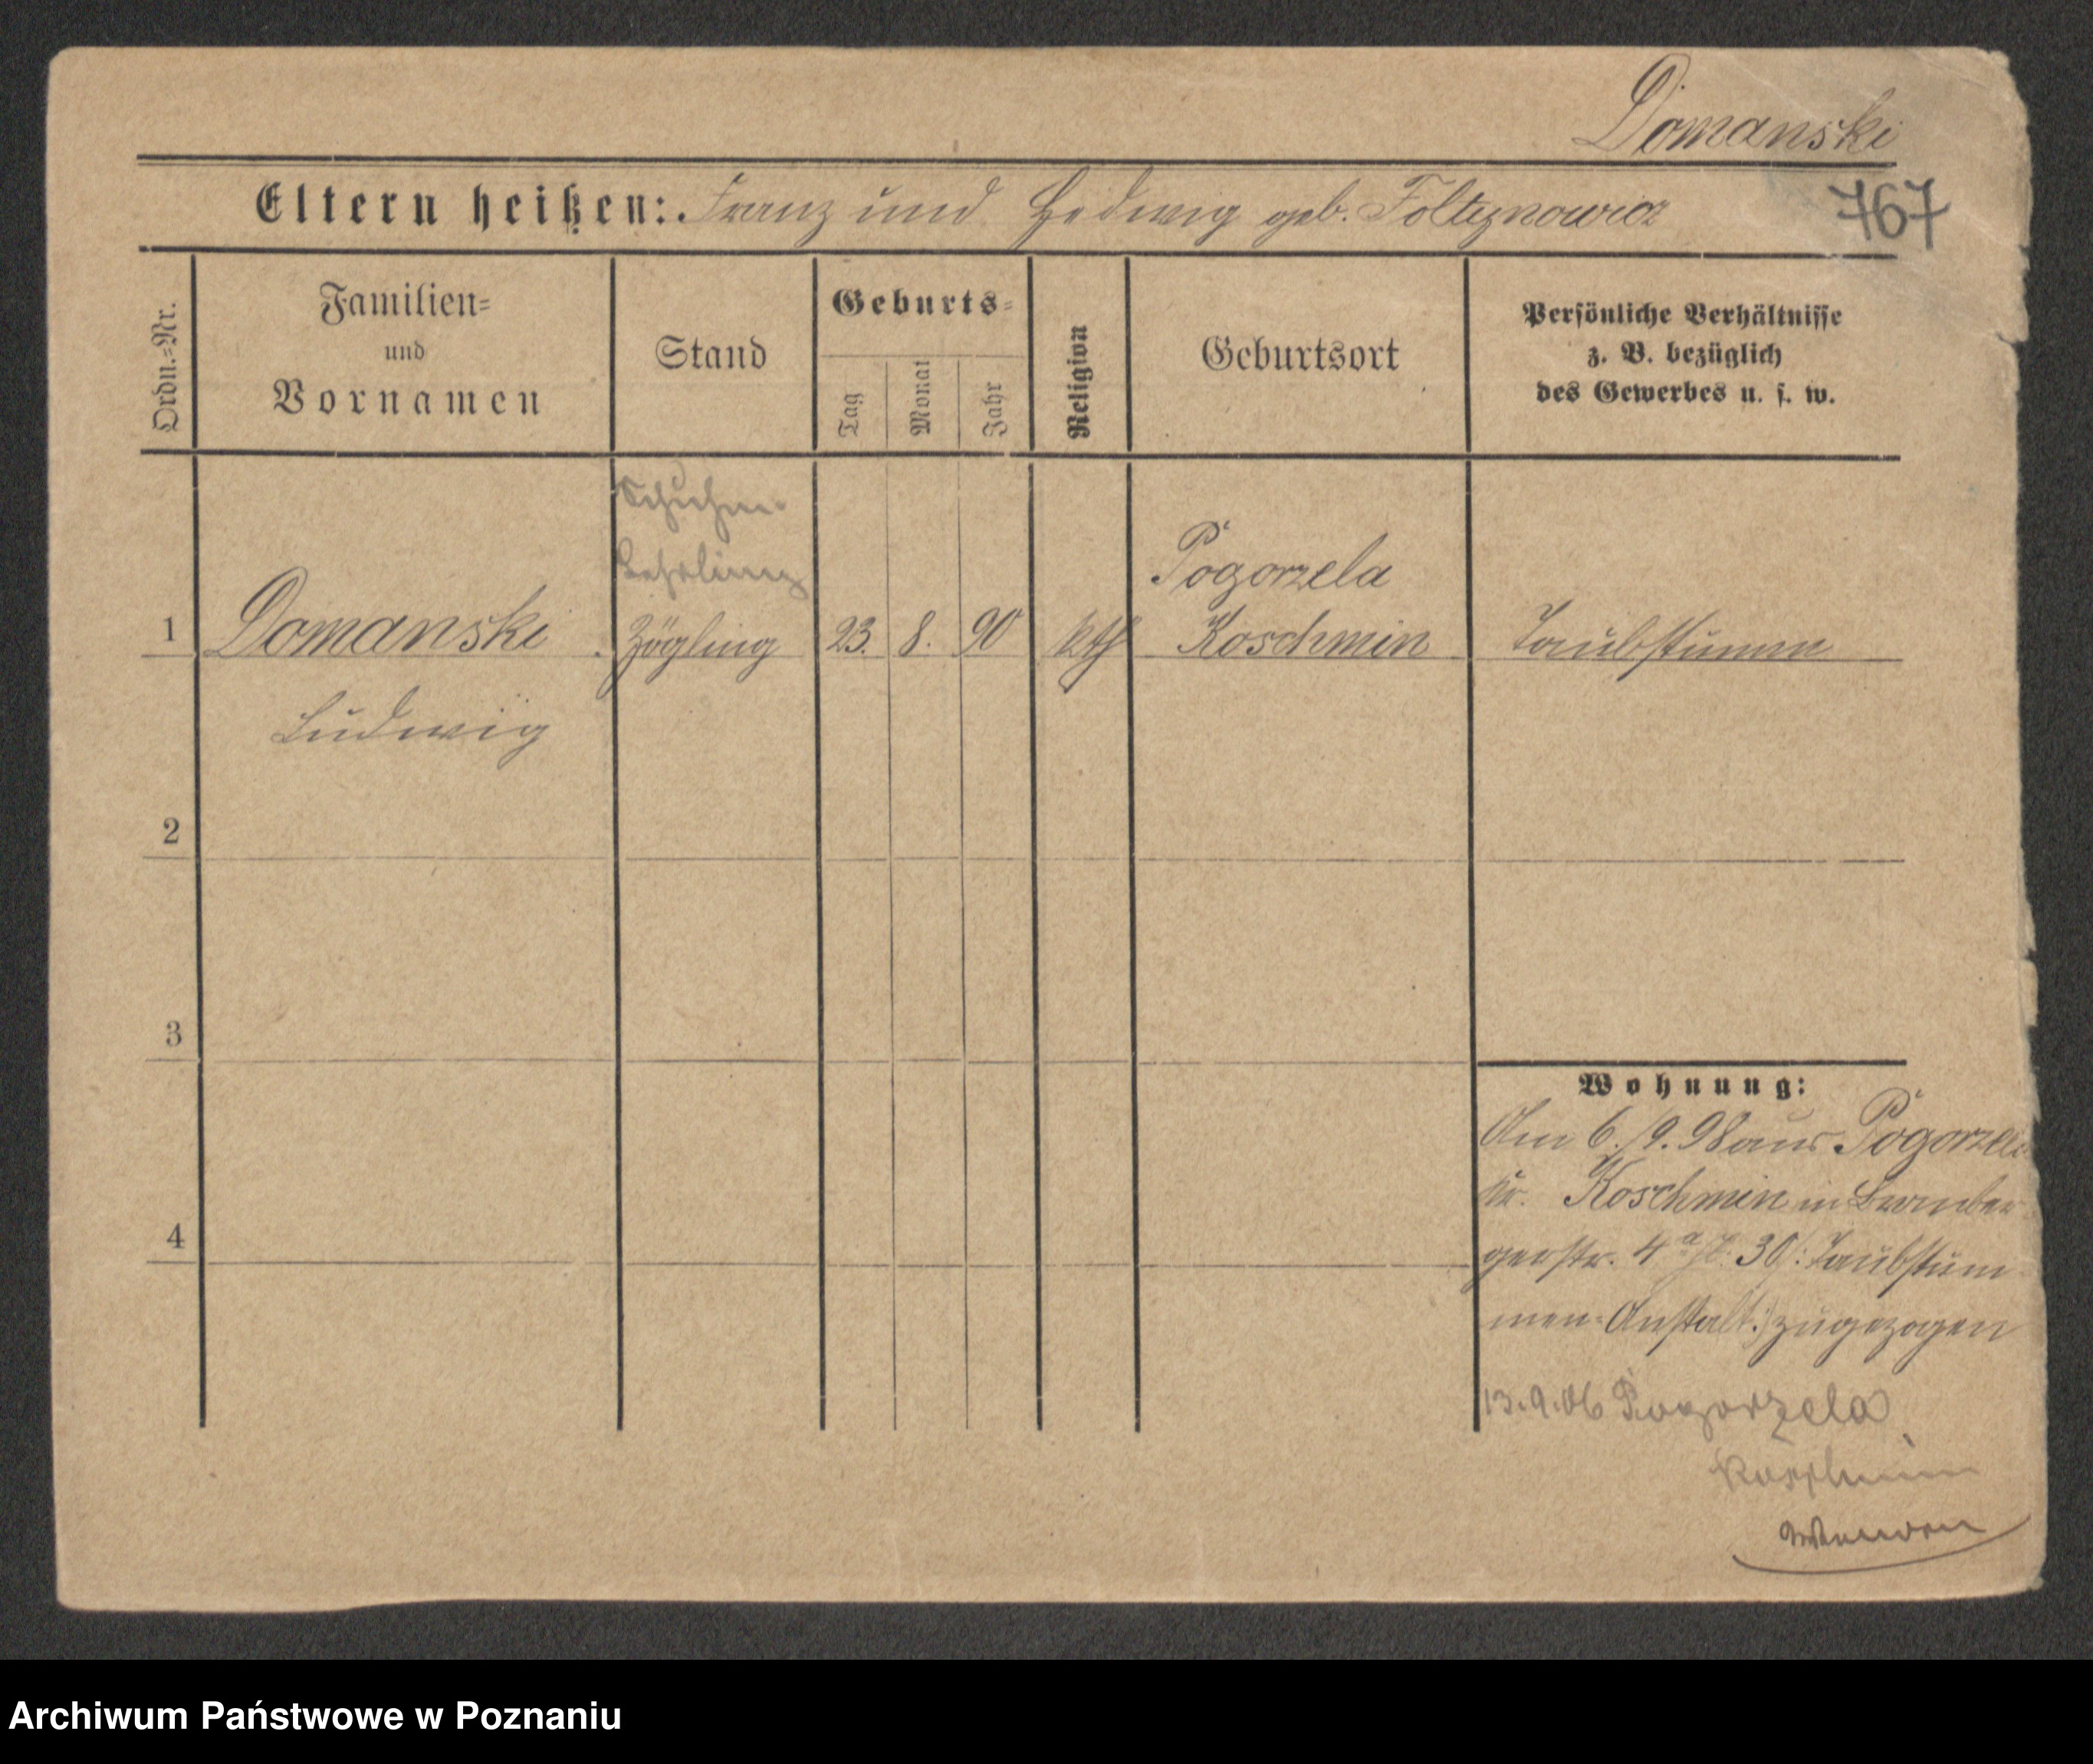 Domanski
Eltern heißen: Franz und Hedwig geb. Foltynowicz
767
Ordn.=Nr.
Familien=
und
Vornamen
Stand
Geburts=
Tag
Monat
Jahr
Religion
Geburtsort
Persönliche Verhältnisse
z. B. bezüglich
des Gewerbes u. s. w.
Schuhm.
Lehrling
Pogorzela
1 Domanski Zögling 23. 8. 90 kth Koschmin Taubstumm
Ludwig
2
3
Wohnung:
Am 6./9. 98 aus Pogorzela
Kr. Koschmin in Bromber
gerstr. 4 a 30 /: Taubstum
men-Anstalt :/ zugezogen
4
13.9.06 Pogorzela
Koschmin
Archiwum Państwowe w Poznaniu